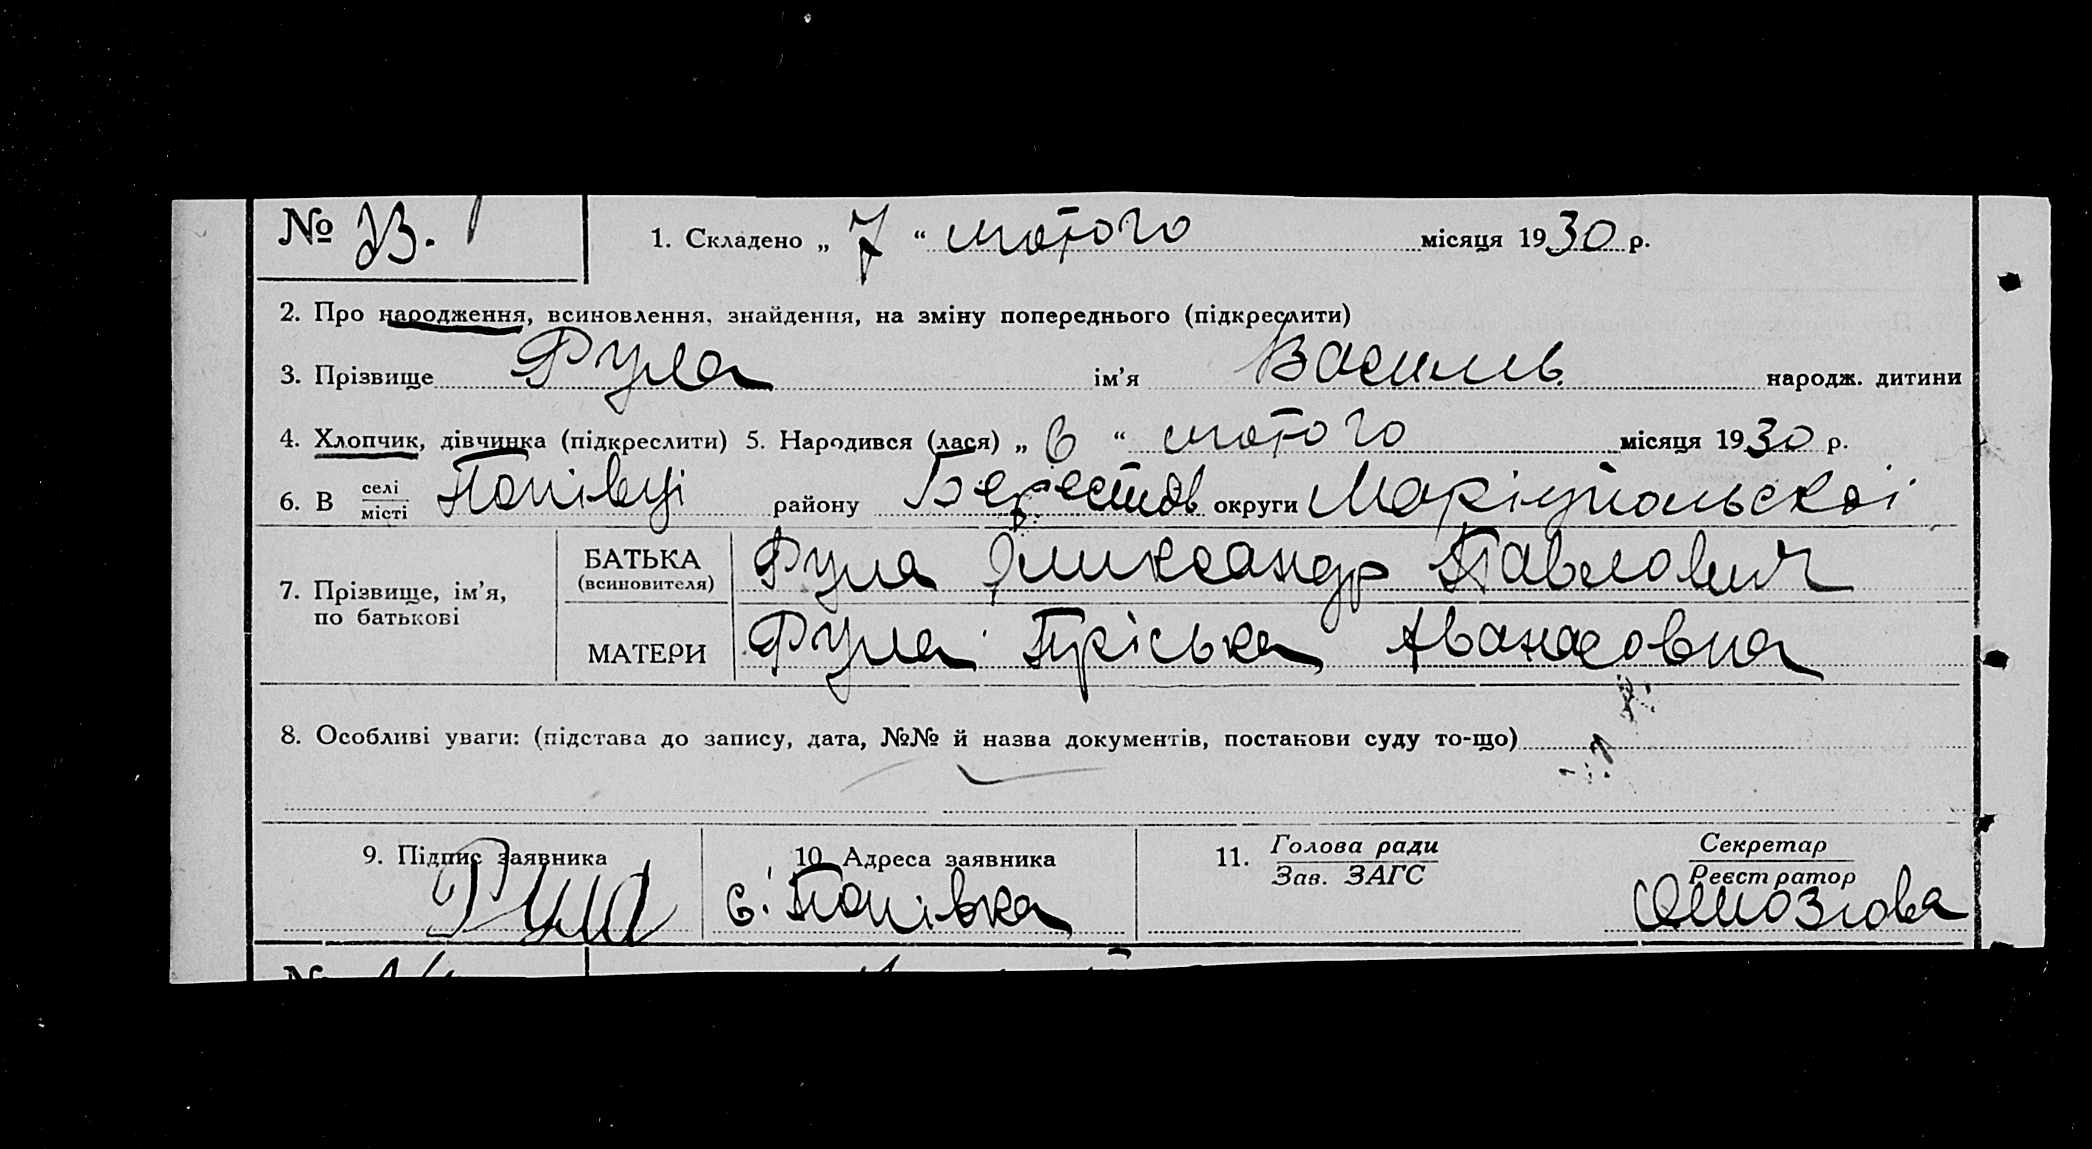 № 23. 1. Складено „ 7 “ лютого місяця 1930 р.
2. Про народження, всиновлення, знайдення, на зміну попереднього (підкреслити)
3. Прізвище Фула ім’я Василь народж. дитини
4. Хлопчик, дівчинка (підкреслити) 5. Народився (лася) „ 6 “ лютого місяця 1930 р.
6. В селі Попівці району Берестов округи Маріупольскої
місті
БАТЬКА Фула Олександр Павлович
(всиновителя)
7. Прізвище, ім’я,
по батькові
МАТЕРИ Фула Пріська Аванасовна
8. Особливі уваги: (підстава до запису, дата, №№ й назва документів, постанови суду то-що)
9. Підпис заявника 10. Адреса заявника 11. Голова ради Секретар
Зав. ЗАГС Реєстратор
Фула с. Попівка
№